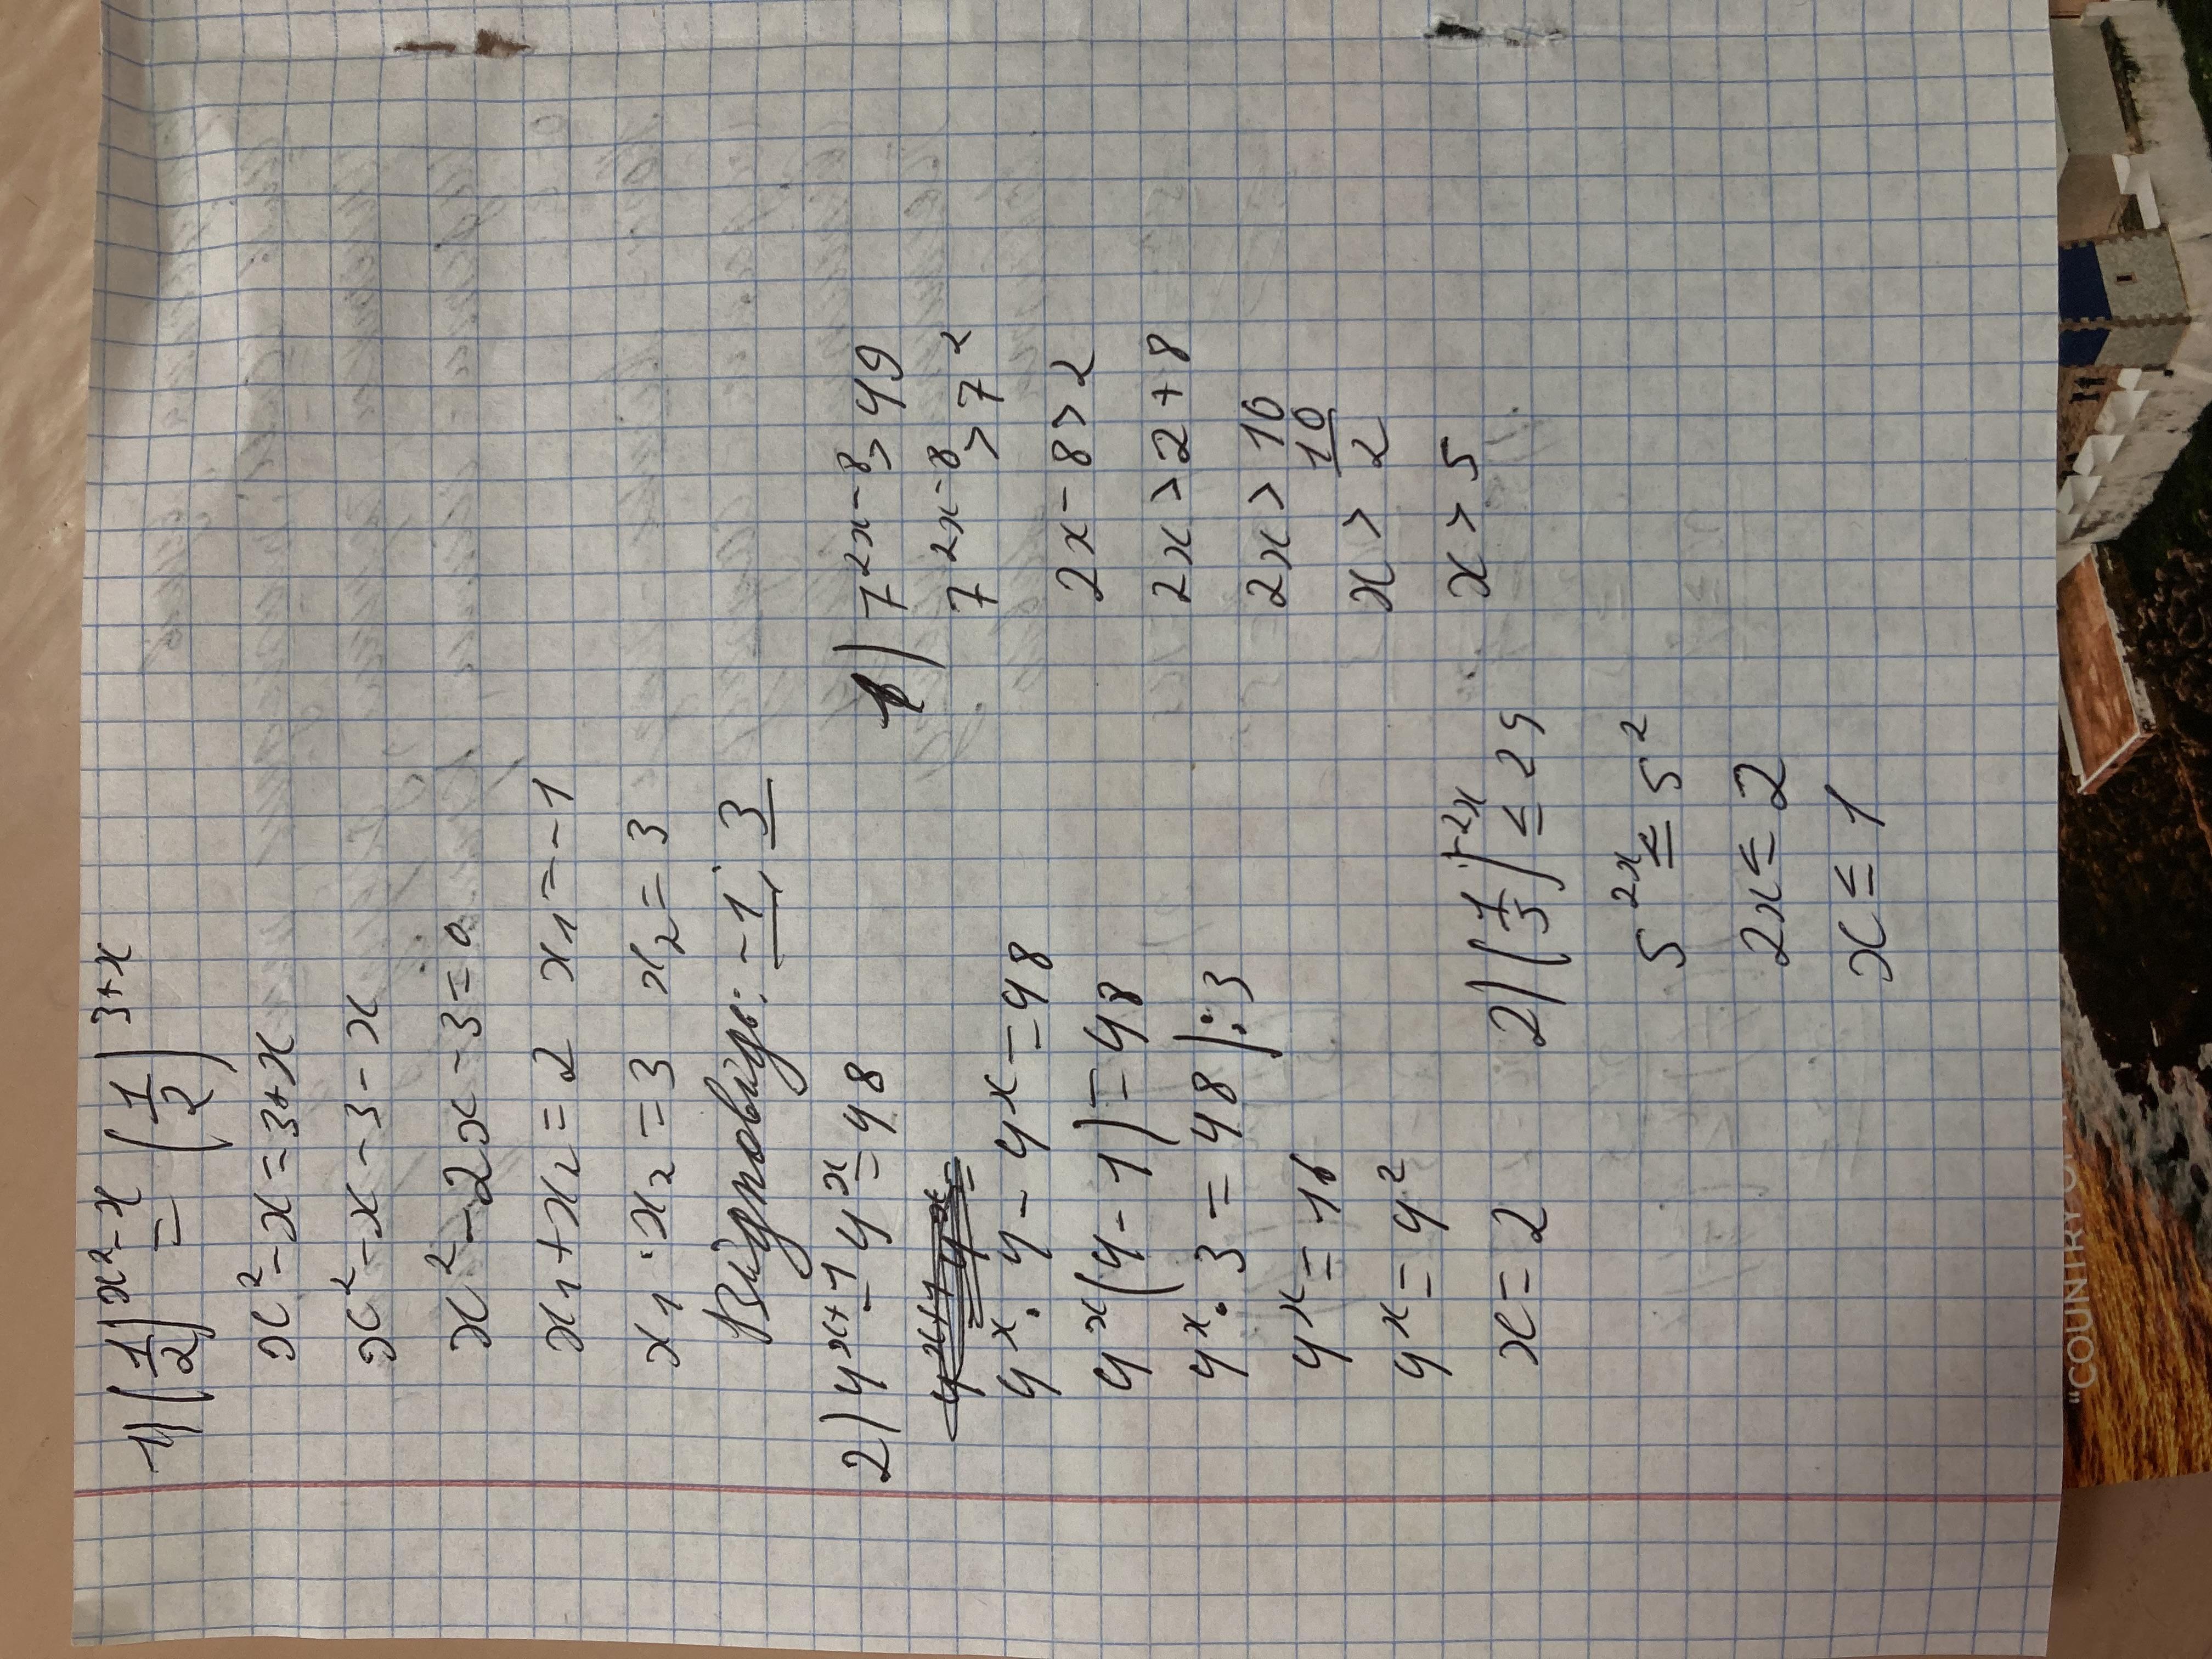 1) (1/2)^x²-x = (1/2)^3+x
x² - x = 3 + x
x² - x - 3 - x
x² - 2x - 3 = 0
x₁ + x₂ = 2 x₁ = -1
x₁ · x₂ = 3 x₂ = 3
Відповідь: -1; 3
2) 4^x+1 - 4^x = 48
4^x · 4 - 4^x = 48
4^x (4 - 1) = 48
4^x · 3 = 48 | : 3
4^x = 16
4^x = 4²
x = 2
1) 7^2x-8 > 49
7^2x-8 > 7²
2x - 8 > 2
2x > 2 + 8
2x > 10
x > 10/2
x > 5
2) (1/5)^-2x ≤ 25
5^2x ≤ 5²
2x ≤ 2
x ≤ 1
"COUNTRY OF